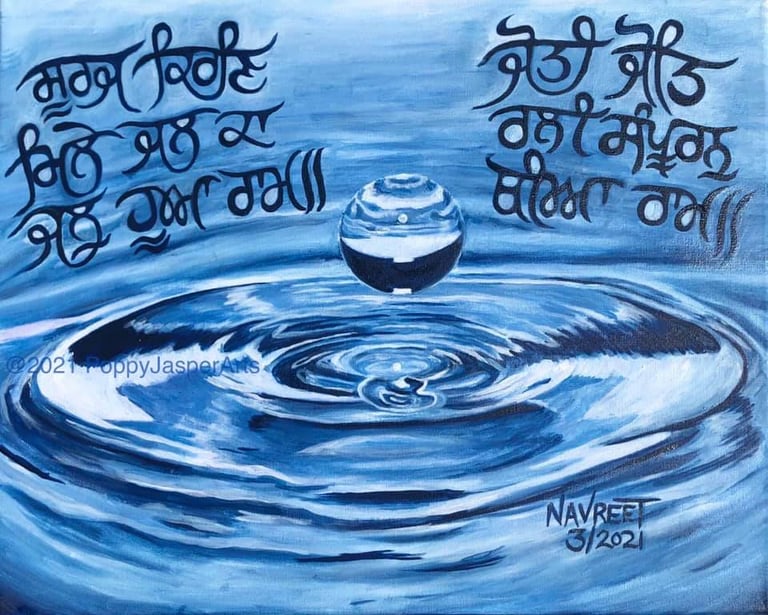 ਸੂਰਜ ਕਿਰਣਿ
ਮਿਲੇ ਜਲ ਕਾ
ਜਲੁ ਹੂਆ ਰਾਮ॥
ਜੋਤੀ ਜੋਤਿ
ਰਲੀ ਸੰਪੂਰਨੁ
ਥੀਆ ਰਾਮ॥
©2021 PoppyJasperArts
NAVREET
3/2021